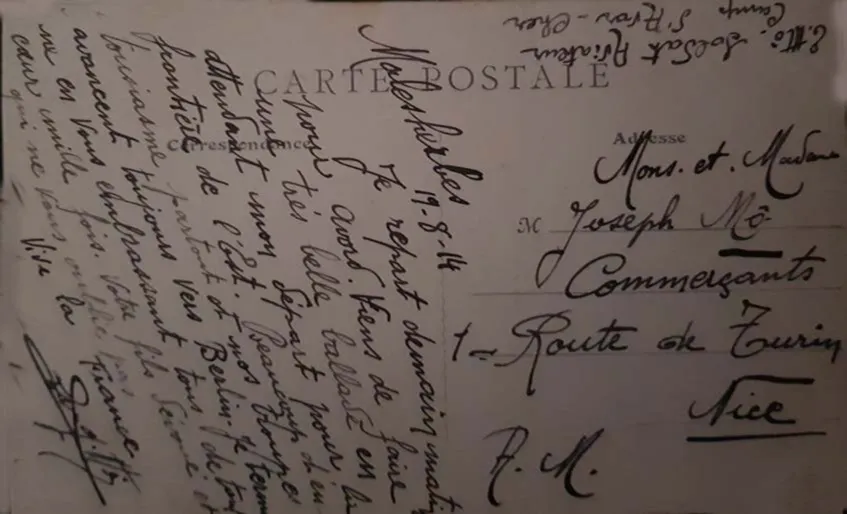 CARTE POSTALE
Correspondance
Adresse
Soldat Aviateur
Camp d'Avor - Cher
Malesherbes
19-8-14
Je repart demain matin
pour avord. Viens de faire
une très belle ballade en
attendant mon départ pour la
frontière de l'Est. Beaucoup d'en-
tousiasme partout et nos troupes
avancent toujours vers Berlin. Je termi
ne en vous embrassant tous de tout
cœur mille fois. Votre fils dévoué et
qui ne vous oublie pas
Vive la France
Mons. et. Madame
M Joseph Mô
Commerçants
Route de Turin
Nice
A. M.